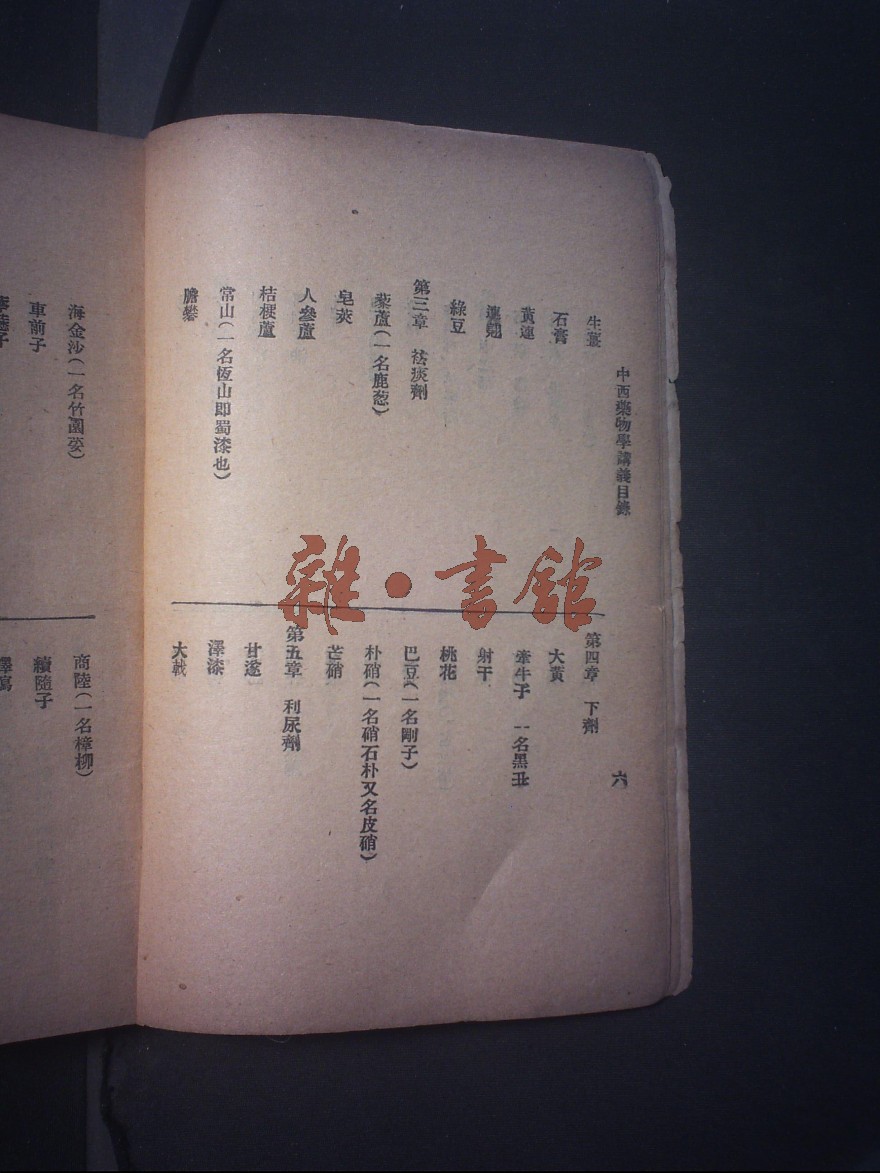 中西藥物學講義目錄
六
生薑
石膏
黃連
連翹
綠豆
第三章 祛痰劑
藜蘆(一名鹿葱)
皂莢
人參蘆
桔梗蘆
常山(一名恆山即蜀漆也)
膽礬
第四章 下劑
大黃
牽牛子 一名黑丑
射干
桃花
巴豆(一名剛子)
朴硝(一名硝石朴又名皮硝)
芒硝
第五章 利尿劑
甘遂
澤漆
大戟
海金沙(一名竹園荽)
車前子
商陸(一名樟柳)
續隨子
澤瀉
雜•書館